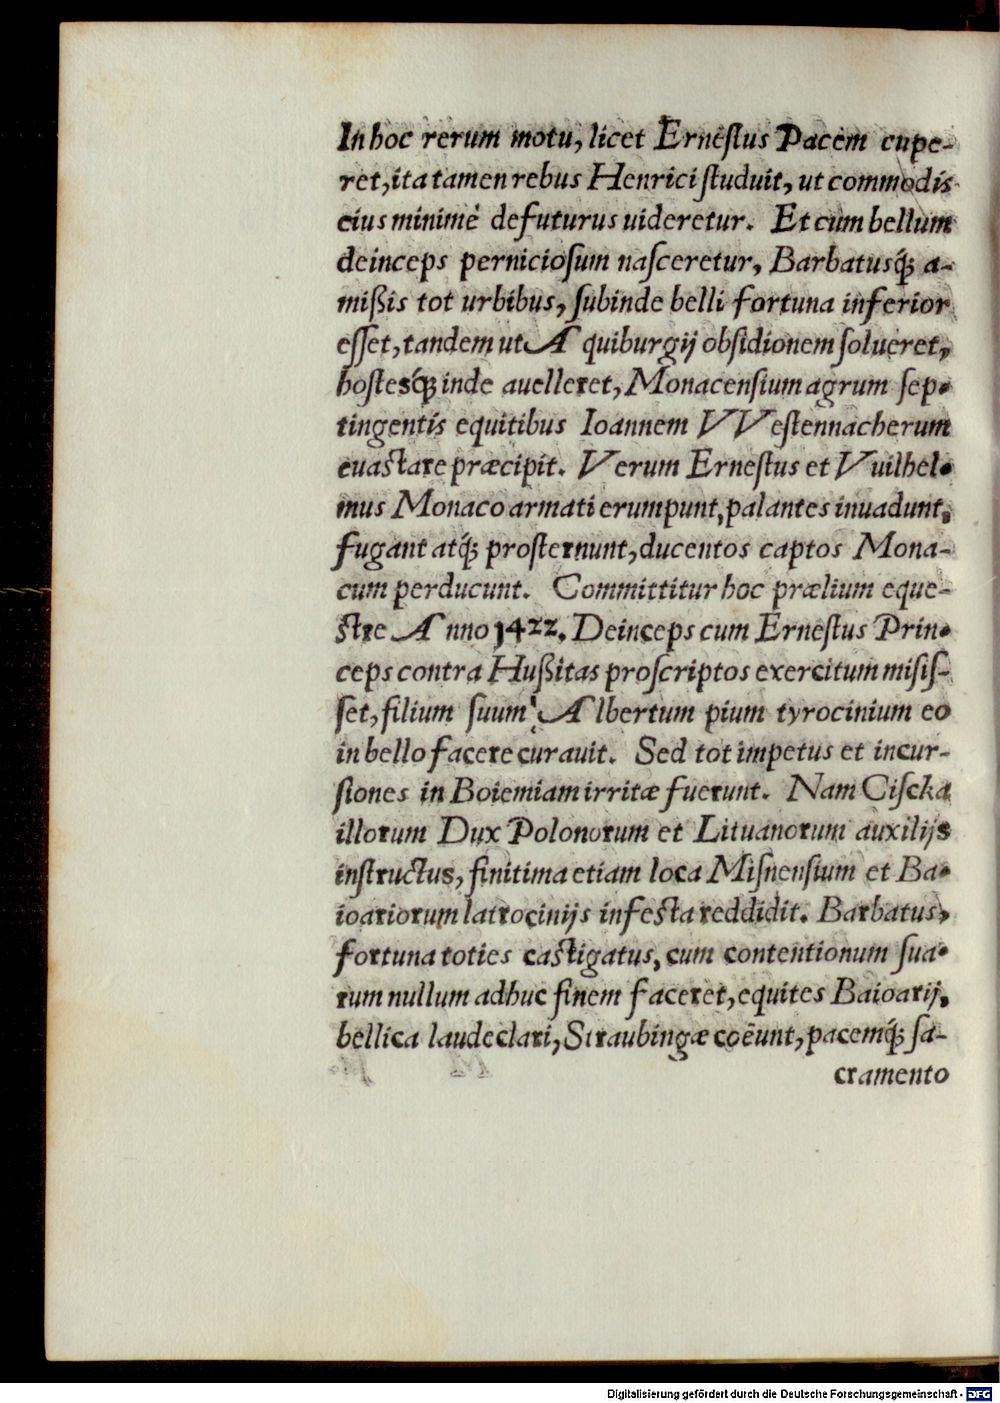 In hoc rerum motu, licet Ernestus Pacem cupe-
ret, ita tamen rebus Henrici studuit, ut commodis
eius minimè defuturus uideretur. Et cum bellum
deinceps perniciosum nasceretur, Barbatusq́; a-
mißis tot urbibus, subinde belli fortuna inferior
esset, tandem ut Aquiburgij obsidionem solueret,
hostesq́; inde auelleret, Monacensium agrum sep-
tingentis equitibus Ioannem VVestennacherum
euastare præcipit. Verum Ernestus et Vuilhel-
mus Monaco armati erumpunt, palantes inuadunt,
fugant atq́; prosternunt, ducentos captos Mona-
cum perducunt. Committitur hoc prælium eque-
stre Anno 1422. Deinceps cum Ernestus Prin-
ceps contra Hußitas proscriptos exercitum misis-
set, filium suum Albertum pium tyrocinium eo
in bello facere curauit. Sed tot impetus et incur-
siones in Boiemiam irritæ fuerunt. Nam Cischa
illorum Dux Polonorum et Lituanorum auxilijs
instructus, finitima etiam loca Misnensium et Ba-
ioariorum latrocinijs infesta reddidit. Barbatus,
fortuna toties castigatus, cum contentionum sua-
rum nullum adhuc finem faceret, equites Baioarij,
bellica laude clari, Straubingæ coëunt, pacemq́; sa-
cramento
Digitalisierung gefördert durch die Deutsche Forschungsgemeinschaft - DFG